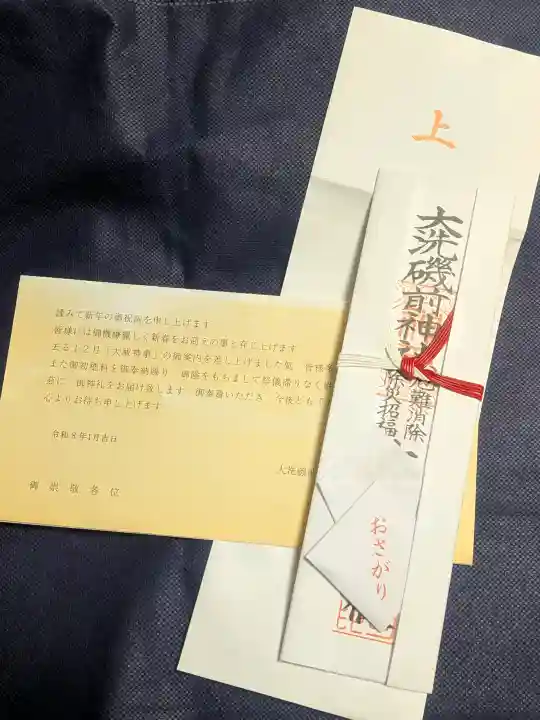 謹みて新年の御祝詞を申し上げます
皆様には御機嫌麗しく新春をお迎えの事と存じ上げます
去る12月「大祓神事」の御案内を差し上げました処 皆様
また御初穂料を御奉納賜り 御蔭をもちまして祭儀滞りなく
茲に 御神札をお届け致します 御奉斎いただき 今後とも
心よりお待ち申し上げます
令和8年1月吉日
大洗磯
御崇敬各位
上
大洗磯前神
厄難消除
除災招福
おさがり